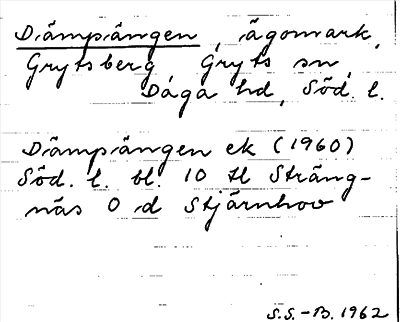 Dämpängen, ägomark,
Grytsberg, Gryts sn,
Daga hd, Söd. l.
Dämpängen ek (1960)
Söd. l. bl. 10 H Sträng-
näs O d Stjärnhov
S.S.-B. 1962